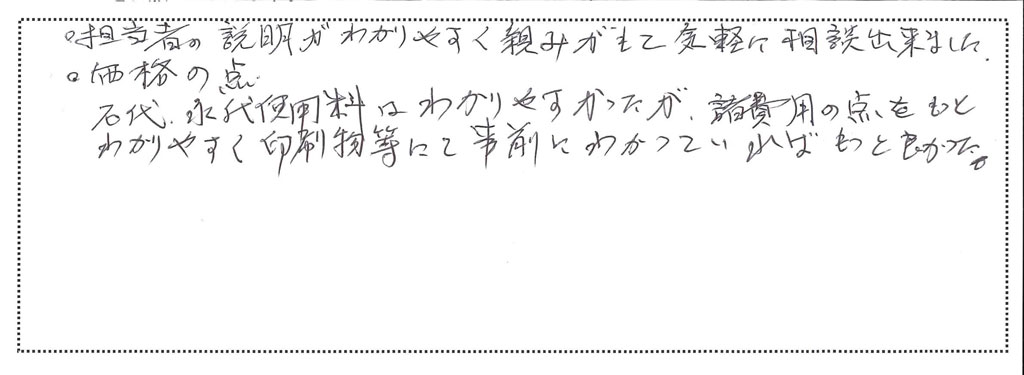 ○担当者の説明がわかりやすく親みがもて気軽に相談出来ました.
○価格の点.
石代、永代使用料はわかりやすかったが、諸費用の点をもと
わかりやすく印刷物等にて事前にわかっていればもっと良かった。